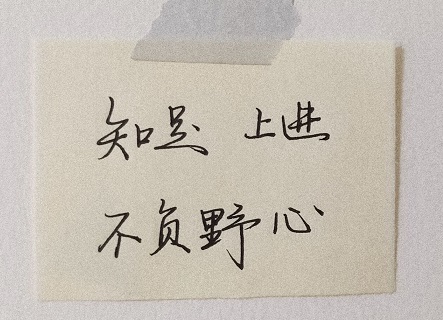 知足 上进
不负野心